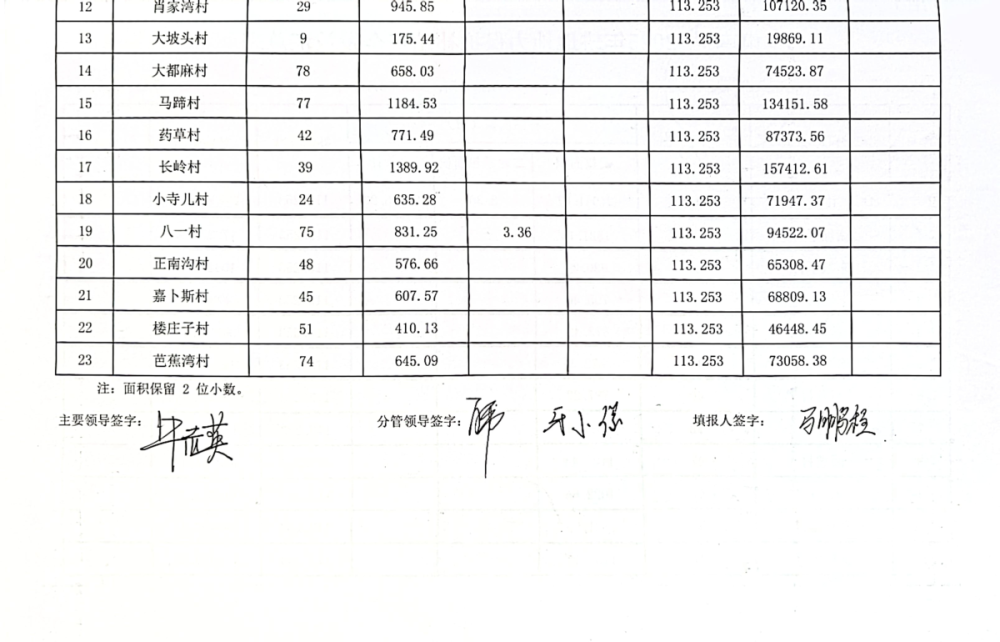 12 肖家湾村 29 945.85 113.253 107120.35
13 大坡头村 9 175.44 113.253 19869.11
14 大都麻村 78 658.03 113.253 74523.87
15 马蹄村 77 1184.53 113.253 134151.58
16 药草村 42 771.49 113.253 87373.56
17 长岭村 39 1389.92 113.253 157412.61
18 小寺儿村 24 635.28 113.253 71947.37
19 八一村 75 831.25 3.36 113.253 94522.07
20 正南沟村 48 576.66 113.253 65308.47
21 嘉卜斯村 45 607.57 113.253 68809.13
22 楼庄子村 51 410.13 113.253 46448.45
23 芭蕉湾村 74 645.09 113.253 73058.38
注：面积保留 2 位小数。
主要领导签字： 分管领导签字： 填报人签字：